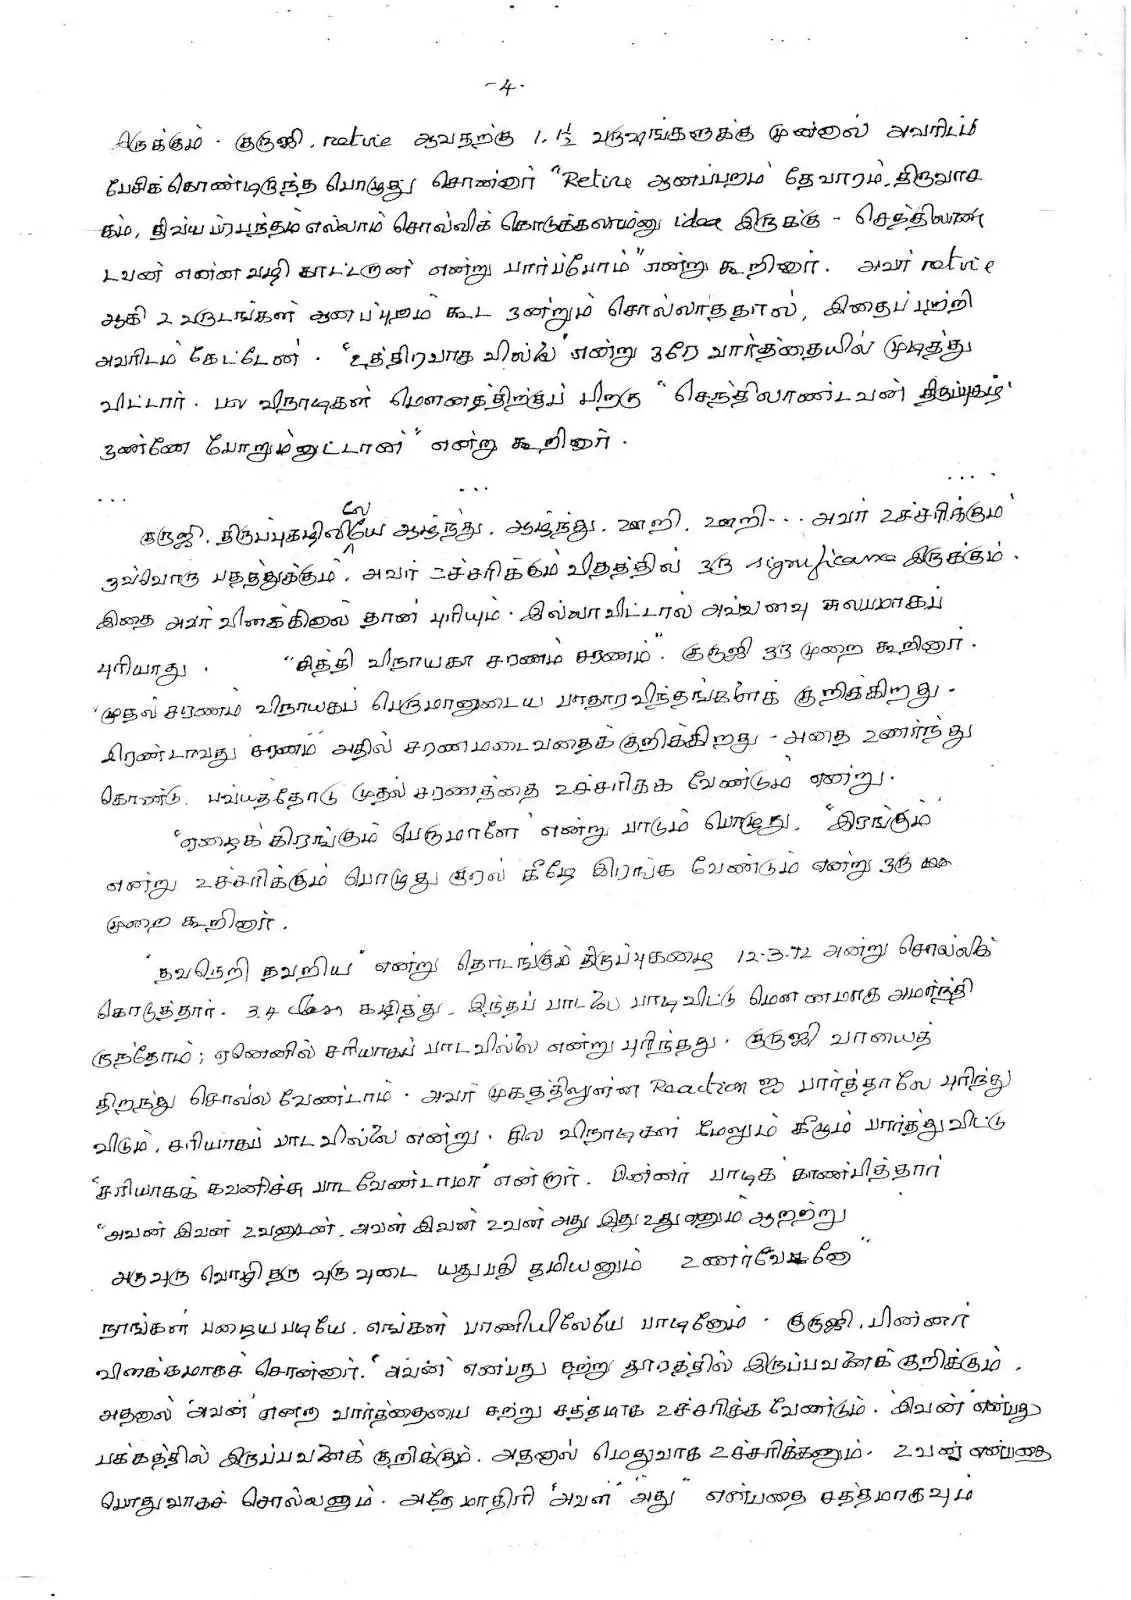 -4-
இருக்கும். குருஜி, retire ஆவதற்கு 1, 1½ வருஷங்களுக்கு முன்னால் அவரிடம்
பேசிக்கொண்டிருந்த பொழுது சொன்னார் "Retire ஆனப்புறம் தேவாரம், திருவாச
கம், திவ்யப்ரபந்தம் எல்லாம் சொல்லிக் கொடுக்கலாம்னு idea இருக்கு - செந்திலாண்
டவன் என்ன வழி காட்டறான் என்று பார்ப்போம்" என்று கூறினார். அவர் retire
ஆகி 2 வருடங்கள் ஆனப்புறம் கூட ஒன்றும் சொல்லாததால், இதைப்பற்றி
அவரிடம் கேட்டேன். "உத்திரவாக வில்லை" என்று ஒரே வார்த்தையில் முடித்து
விட்டார். பல விநாடிகள் மௌனத்திற்குப் பிறகு "செந்திலாண்டவன் திருப்புகழ்
ஒண்ணே போறும்னுட்டான்" என்று கூறினார்.
... ... ...
குருஜி, திருப்புகழிலேயே ஆழ்ந்து, ஆழ்ந்து, ஊறி, ஊறி... அவர் உச்சரிக்கும்
ஒவ்வொரு பதத்துக்கும், அவர் உச்சரிக்கும் விதத்தில் ஒரு significance இருக்கும்.
இதை அவர் விளக்கினால் தான் புரியும். இல்லாவிட்டால் அவ்வளவு சுலபமாகப்
புரியாது. "சித்தி விநாயகா சரணம் சரணம்". குருஜி ஒரு முறை கூறினார்.
'முதல் சரணம் விநாயகப் பெருமானுடைய பாதாரவிந்தங்களைக் குறிக்கிறது.
இரண்டாவது சரணம் அதில் சரணமடைவதைக் குறிக்கிறது - அதை உணர்ந்து
கொண்டு, பவ்யத்தோடு முதல் சரணத்தை உச்சரிக்க வேண்டும் என்று.
'ஏழைக்கிரங்கும் பெருமாளே' என்று பாடும் பொழுது, 'இரங்கும்'
என்று உச்சரிக்கும் பொழுது குரல் கீழே இரங்க வேண்டும் என்று ஒரு
முறை கூறினார்.
'தவநெறி தவறிய' என்று தொடங்கும் திருப்புகழை 12-3-72 அன்று சொல்லிக்
கொடுத்தார். 3,4 class கழித்து, இந்தப் பாடலை பாடி விட்டு மௌனமாக அமர்ந்தி
ருந்தோம்; ஏனெனில் சரியாகப் பாடவில்லை என்று புரிந்தது. குருஜி வாயைத்
திறந்து சொல்ல வேண்டாம். அவர் முகத்திலுள்ள Reaction ஐ பார்த்தாலே புரிந்து
விடும், சரியாகப் பாடவில்லை என்று. சில விநாடிகள் மேலும் கீழும் பார்த்து விட்டு
"சரியாகக் கவனிச்சு பாட வேண்டாமா" என்றார். பின்னர் பாடிக் காண்பித்தார்
"அவன் இவன் உவனுடன், அவள் இவள் உவள் அது இது உது எனும் ஆற்று
அருவுரு வொழிதரு வுருவுடை யதுபதி தமியனும் உணர்வேனே"
நாங்கள் பழையபடியே, எங்கள் பாணியிலேயே பாடினோம். குருஜி, பின்னர்
விளக்கமாகச் சொன்னார். 'அவன்' என்பது சற்று தூரத்தில் இருப்பவனைக் குறிக்கும்.
அதனால் 'அவன்' என்ற வார்த்தையை சற்று சத்தமாக உச்சரிக்க வேண்டும். 'இவன்' என்பது
பக்கத்தில் இருப்பவனைக் குறிக்கும். அதனால் மெதுவாக உச்சரிக்கணும். உவன் என்பதை
பொதுவாகச் சொல்லணும். அதே மாதிரி 'அவள்' "அது" என்பதை சத்தமாகவும்